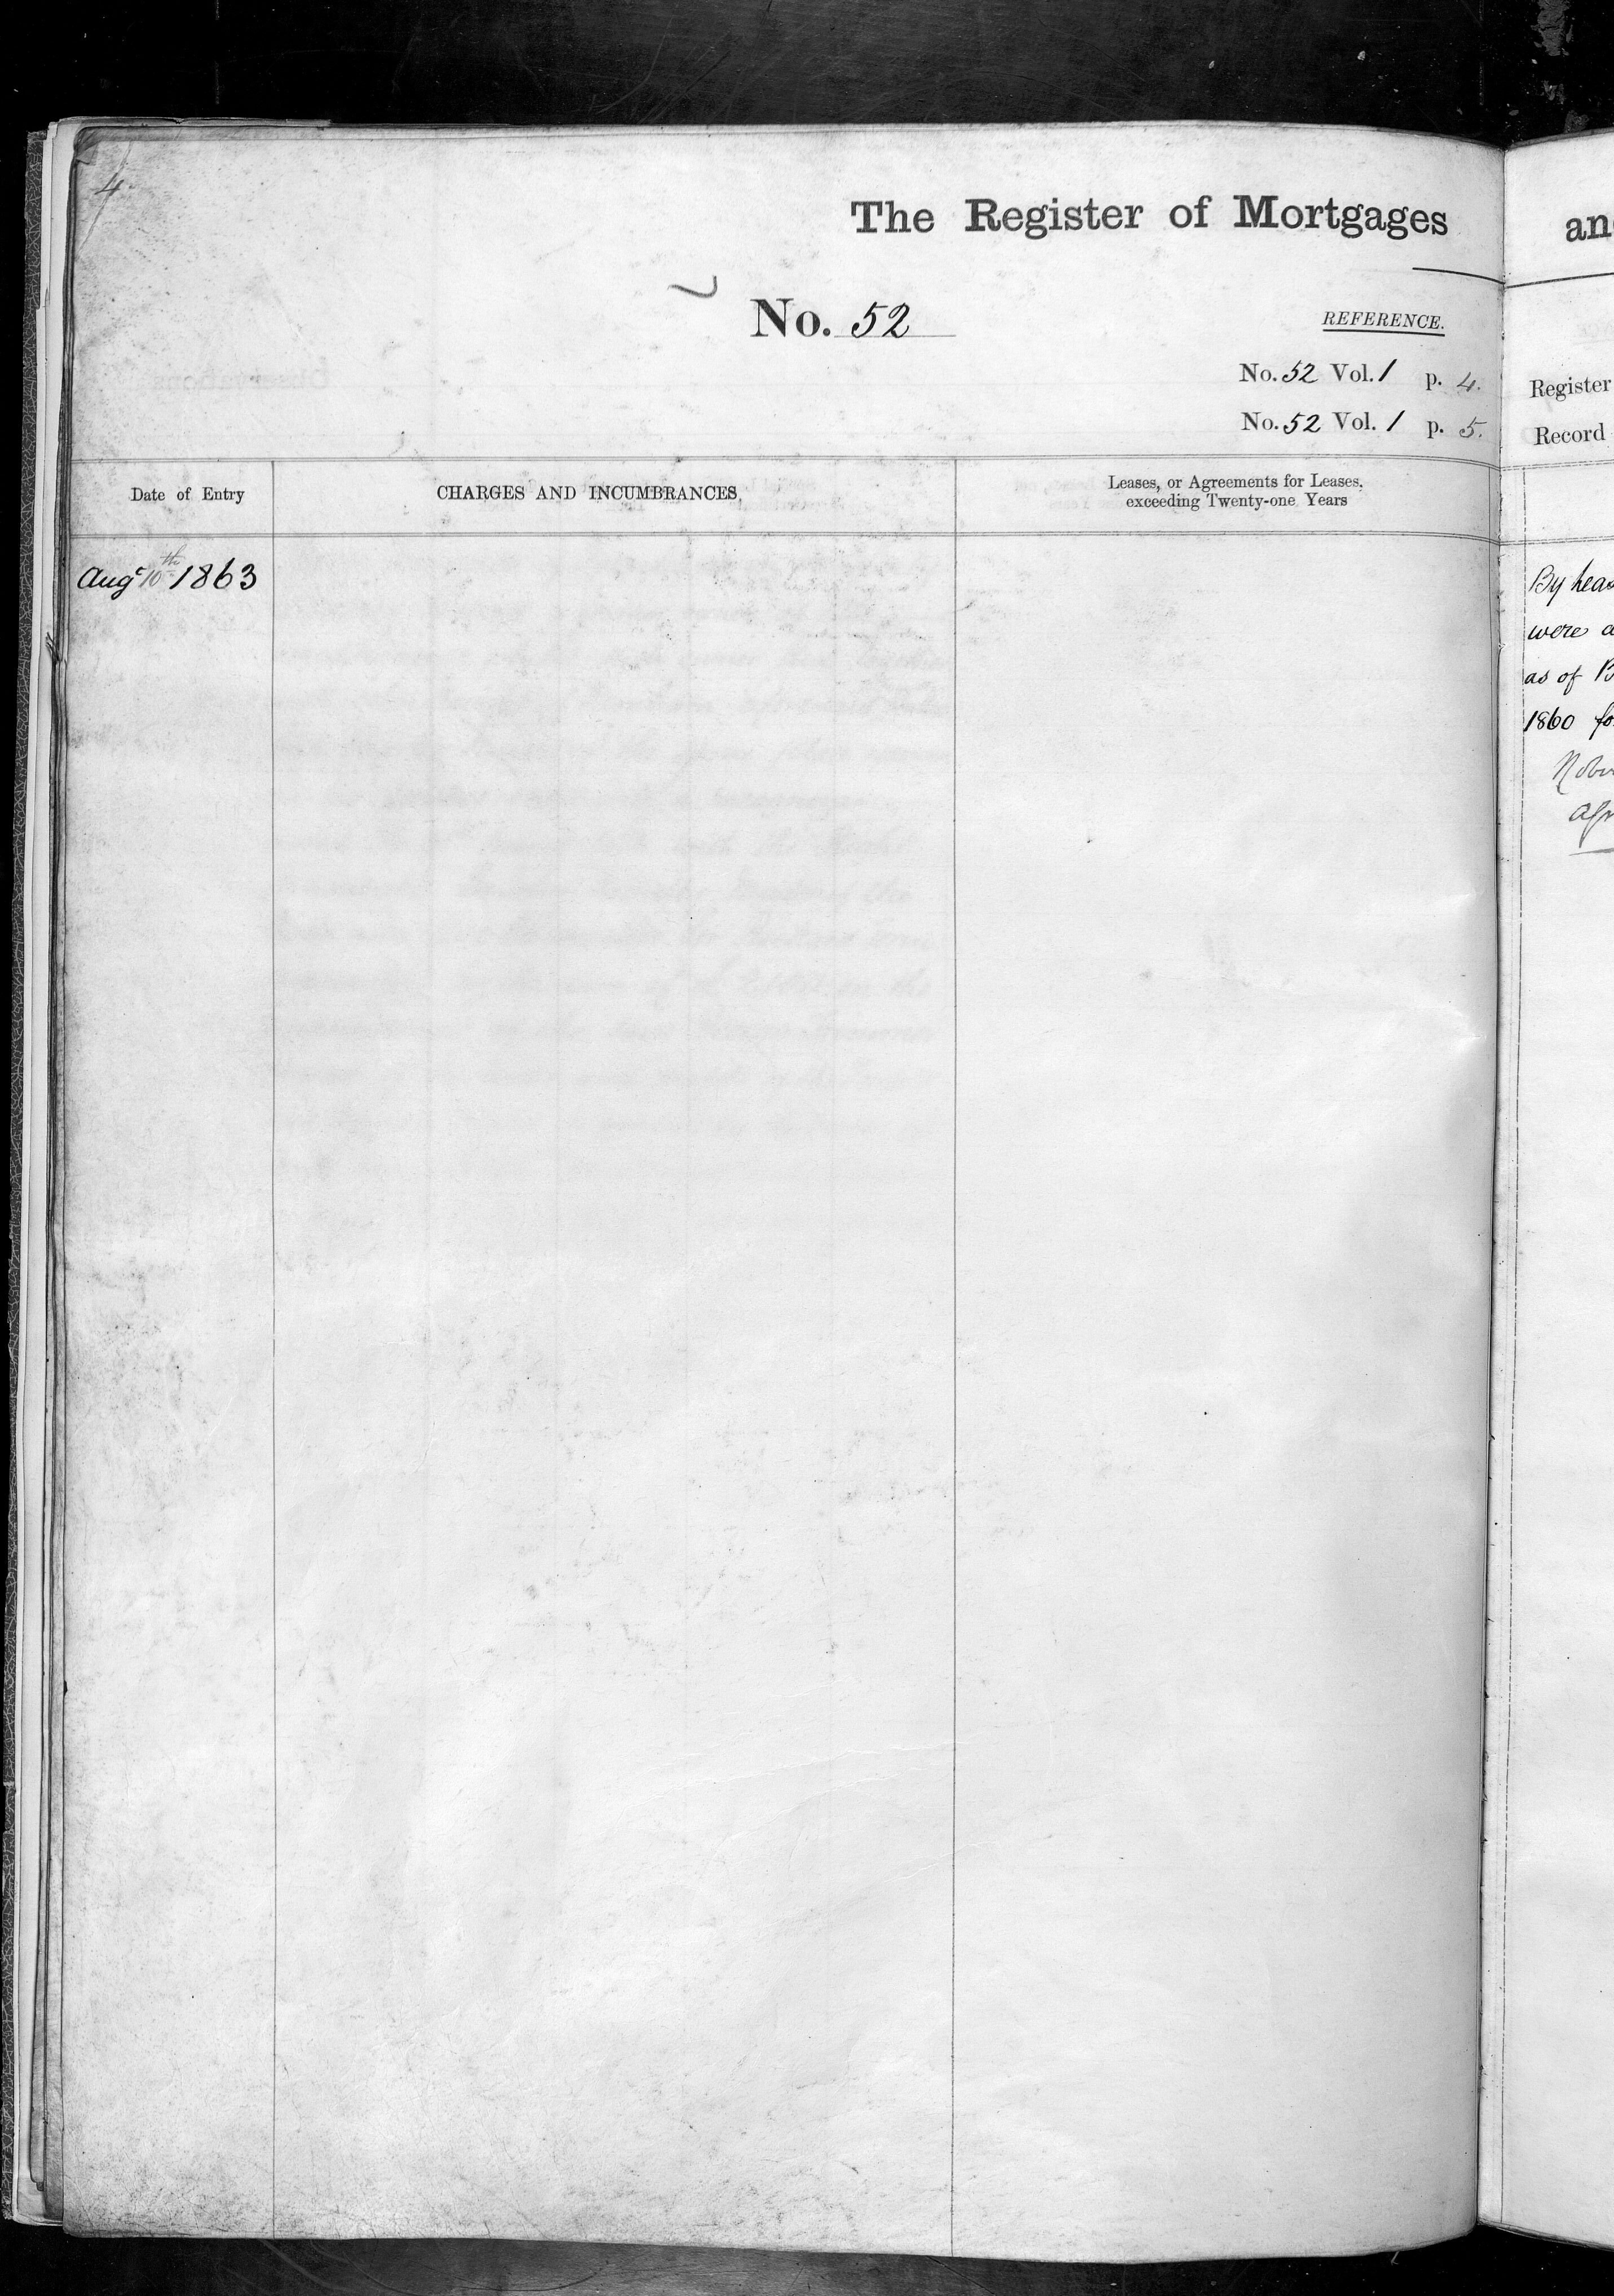 4
The Register of Mortgages
No. 52
REFERENCE.
No. 52 Vol. 1 p. 4.
No. 52 Vol. 1 p. 5.
Date of Entry
CHARGES AND INCUMBRANCES,
Leases, or Agreements for Leases,
exceeding Twenty-one Years
Augt 10th 1863
Register
Record
By
were
as of
1860